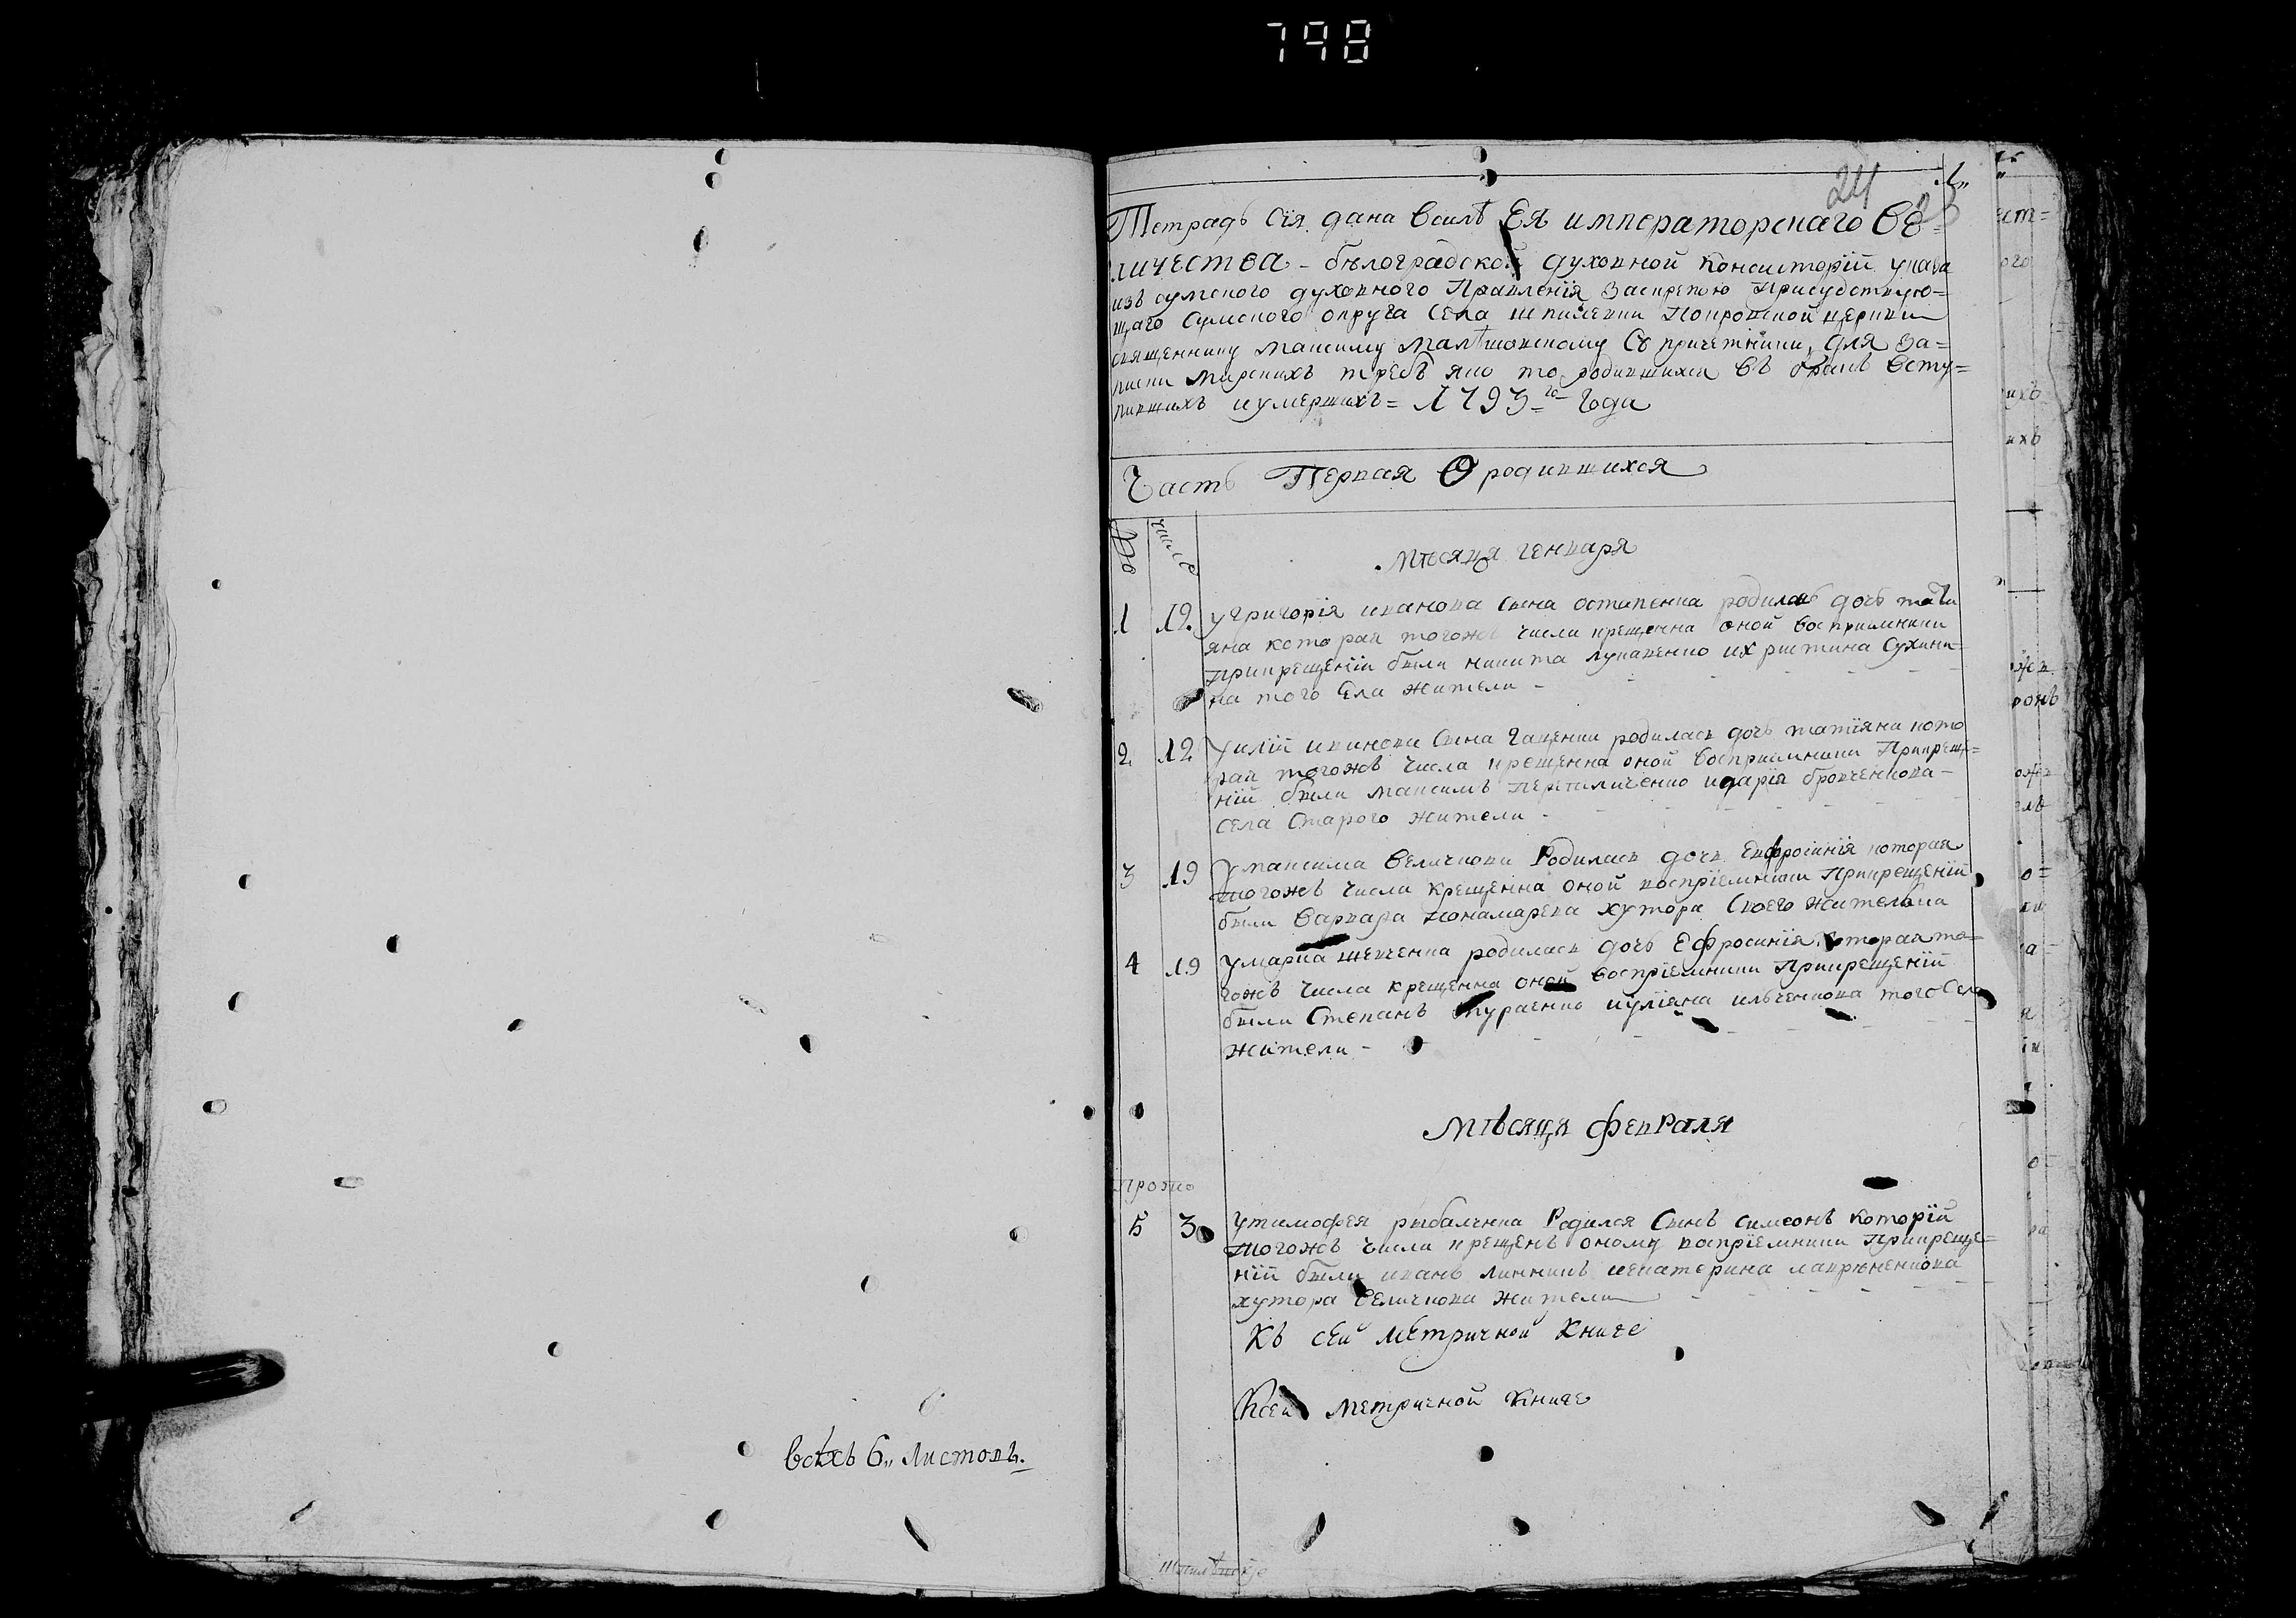 798
всѣхъ 6,, листовъ.
24
1,,
Тетрадь сія дана всилѣ Ея императорскаго Ве=
личества - бѣлоградской духовной Консисторіи указа
изъ сумского духовного Правленія заскрепою Присудствую=
щаго Сумского округа Села шпилевки Покровской церкви
священнику Максиму Малѣшовскому Съ причетники, для за=
писки мирскихъ требъ яко то родившихся въ бракъ всту=
пившихъ иумершихъ = 1793=го Года
Часть Первая О родившихся
число
Мѣсяца генваря
1 19. угригорія иванова сина остапенка родилась дочь тати
яна которая тогожъ числа крещенна оной восприемники
прикрещеніи были никита лукавенко ихристина Сухини
на того Села жители -
2 12 Уилій иванова сина Гаценки родилась дочь татіяна кото
рая тогожъ числа крещенна оной восприемники Прикреще=
ній были максимъ идарія бровченкова -
села Старого жители -
3 19 Умаксима величкови Родилась дочь Евфросинія которая
тогожъ числа крещенна оной воспріемники Прикрещеній
были варвара понамарева хутора Своего жителька
4 19 Умарка шевченка родилась дочь Ефросинія которая то=
гожъ числа крещенна оной воспріемники Прикрещеній
были Степанъ иуліяна ильченкова того Села
жители -
Мѣсяця февраля
5 3 Утимофея рибалчнка Родился Синъ симеонъ которій
тогожъ числа крещенъ оному воспріемники Прикреще=
ній были иванъ линникъ иекатерина лаврѣненкова
хутора Величкови жители
Къ сей метричной Книге
Ксей метричной Книге